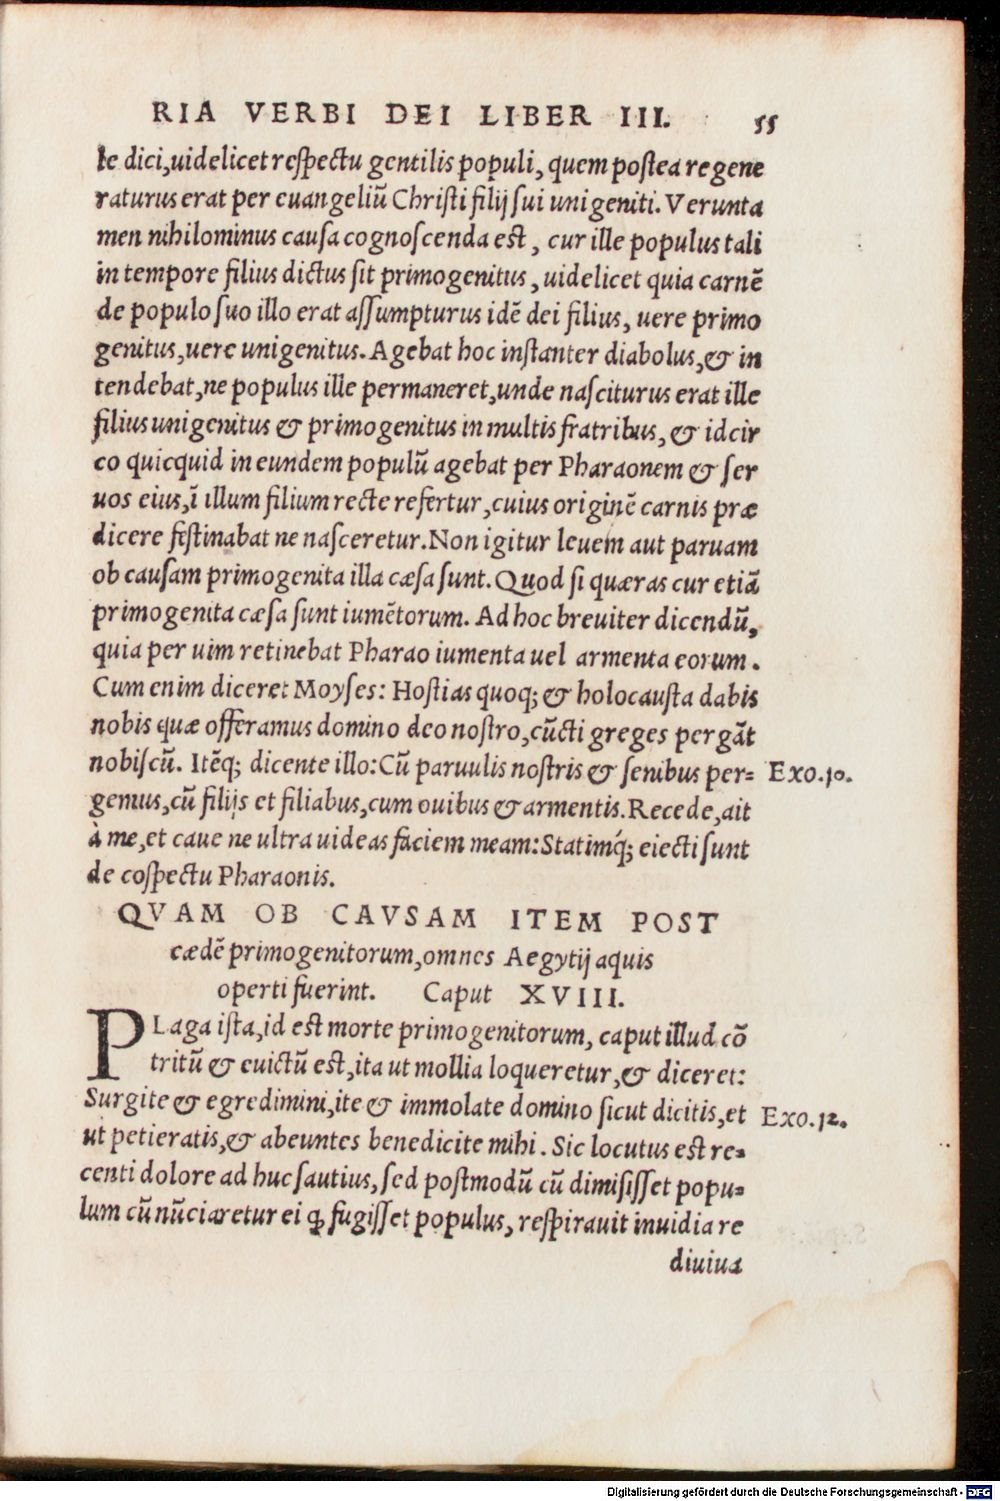 RIA VERBI DEI LIBER III. 55
le dici, uidelicet respectu gentilis populi, quem postea regene
raturus erat per euangeliũ Christi filij sui unigeniti. Verunta
men nihilominus causa cognoscenda est, cur ille populus tali
in tempore filius dictus sit primogenitus, uidelicet quia carnẽ
de populo suo illo erat assumpturus idẽ dei filius, uere primo
genitus, uere unigenitus. Agebat hoc instanter diabolus, & in
tendebat, ne populus ille permaneret, unde nasciturus erat ille
filius unigenitus & primogenitus in multis fratribus, & idcir
co quicquid in eundem populũ agebat per Pharaonem & ser
uos eius, ĩ illum filium recte refertur, cuius originẽ carnis præ
dicere festinabat ne nasceretur. Non igitur leuem aut paruam
ob causam primogenita illa cæsa sunt. Quod si quæras cur etiã
primogenita cæsa sunt iumẽtorum. Ad hoc breuiter dicendũ,
quia per uim retinebat Pharao iumenta uel armenta eorum.
Cum enim diceret Moyses: Hostias quoq; & holocausta dabis
nobis quæ offeramus domino deo nostro, cũcti greges pergãt
nobiscũ. Itẽq; dicente illo: Cũ paruulis nostris & senibus per= Exo.10.
gemus, cũ filijs et filiabus, cum ouibus & armentis. Recede, ait
à me, et caue ne ultra uideas faciem meam: Statimq́; eiecti sunt
de cospectu Pharaonis.
QVAM OB CAVSAM ITEM POST
cædẽ primogenitorum, omnes Aegytij aquis
operti fuerint. Caput XVIII.
PLaga ista, id est morte primogenitorum, caput illud cõ
tritũ & euictũ est, ita ut mollia loqueretur, & diceret:
Surgite & egredimini, ite & immolate domino sicut dicitis, et Exo.12.
ut petieratis, & abeuntes benedicite mihi. Sic locutus est re=
centi dolore adhuc sautius, sed postmodũ cũ dimisisset popu=
lum cũ nũciaretur ei ꝙ fugisset populus, respirauit inuidia re
diuiua
Digitalisierung gefördert durch die Deutsche Forschungsgemeinschaft - DFG